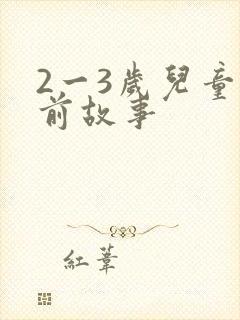 2一3歲兒童
前故事
紅葦